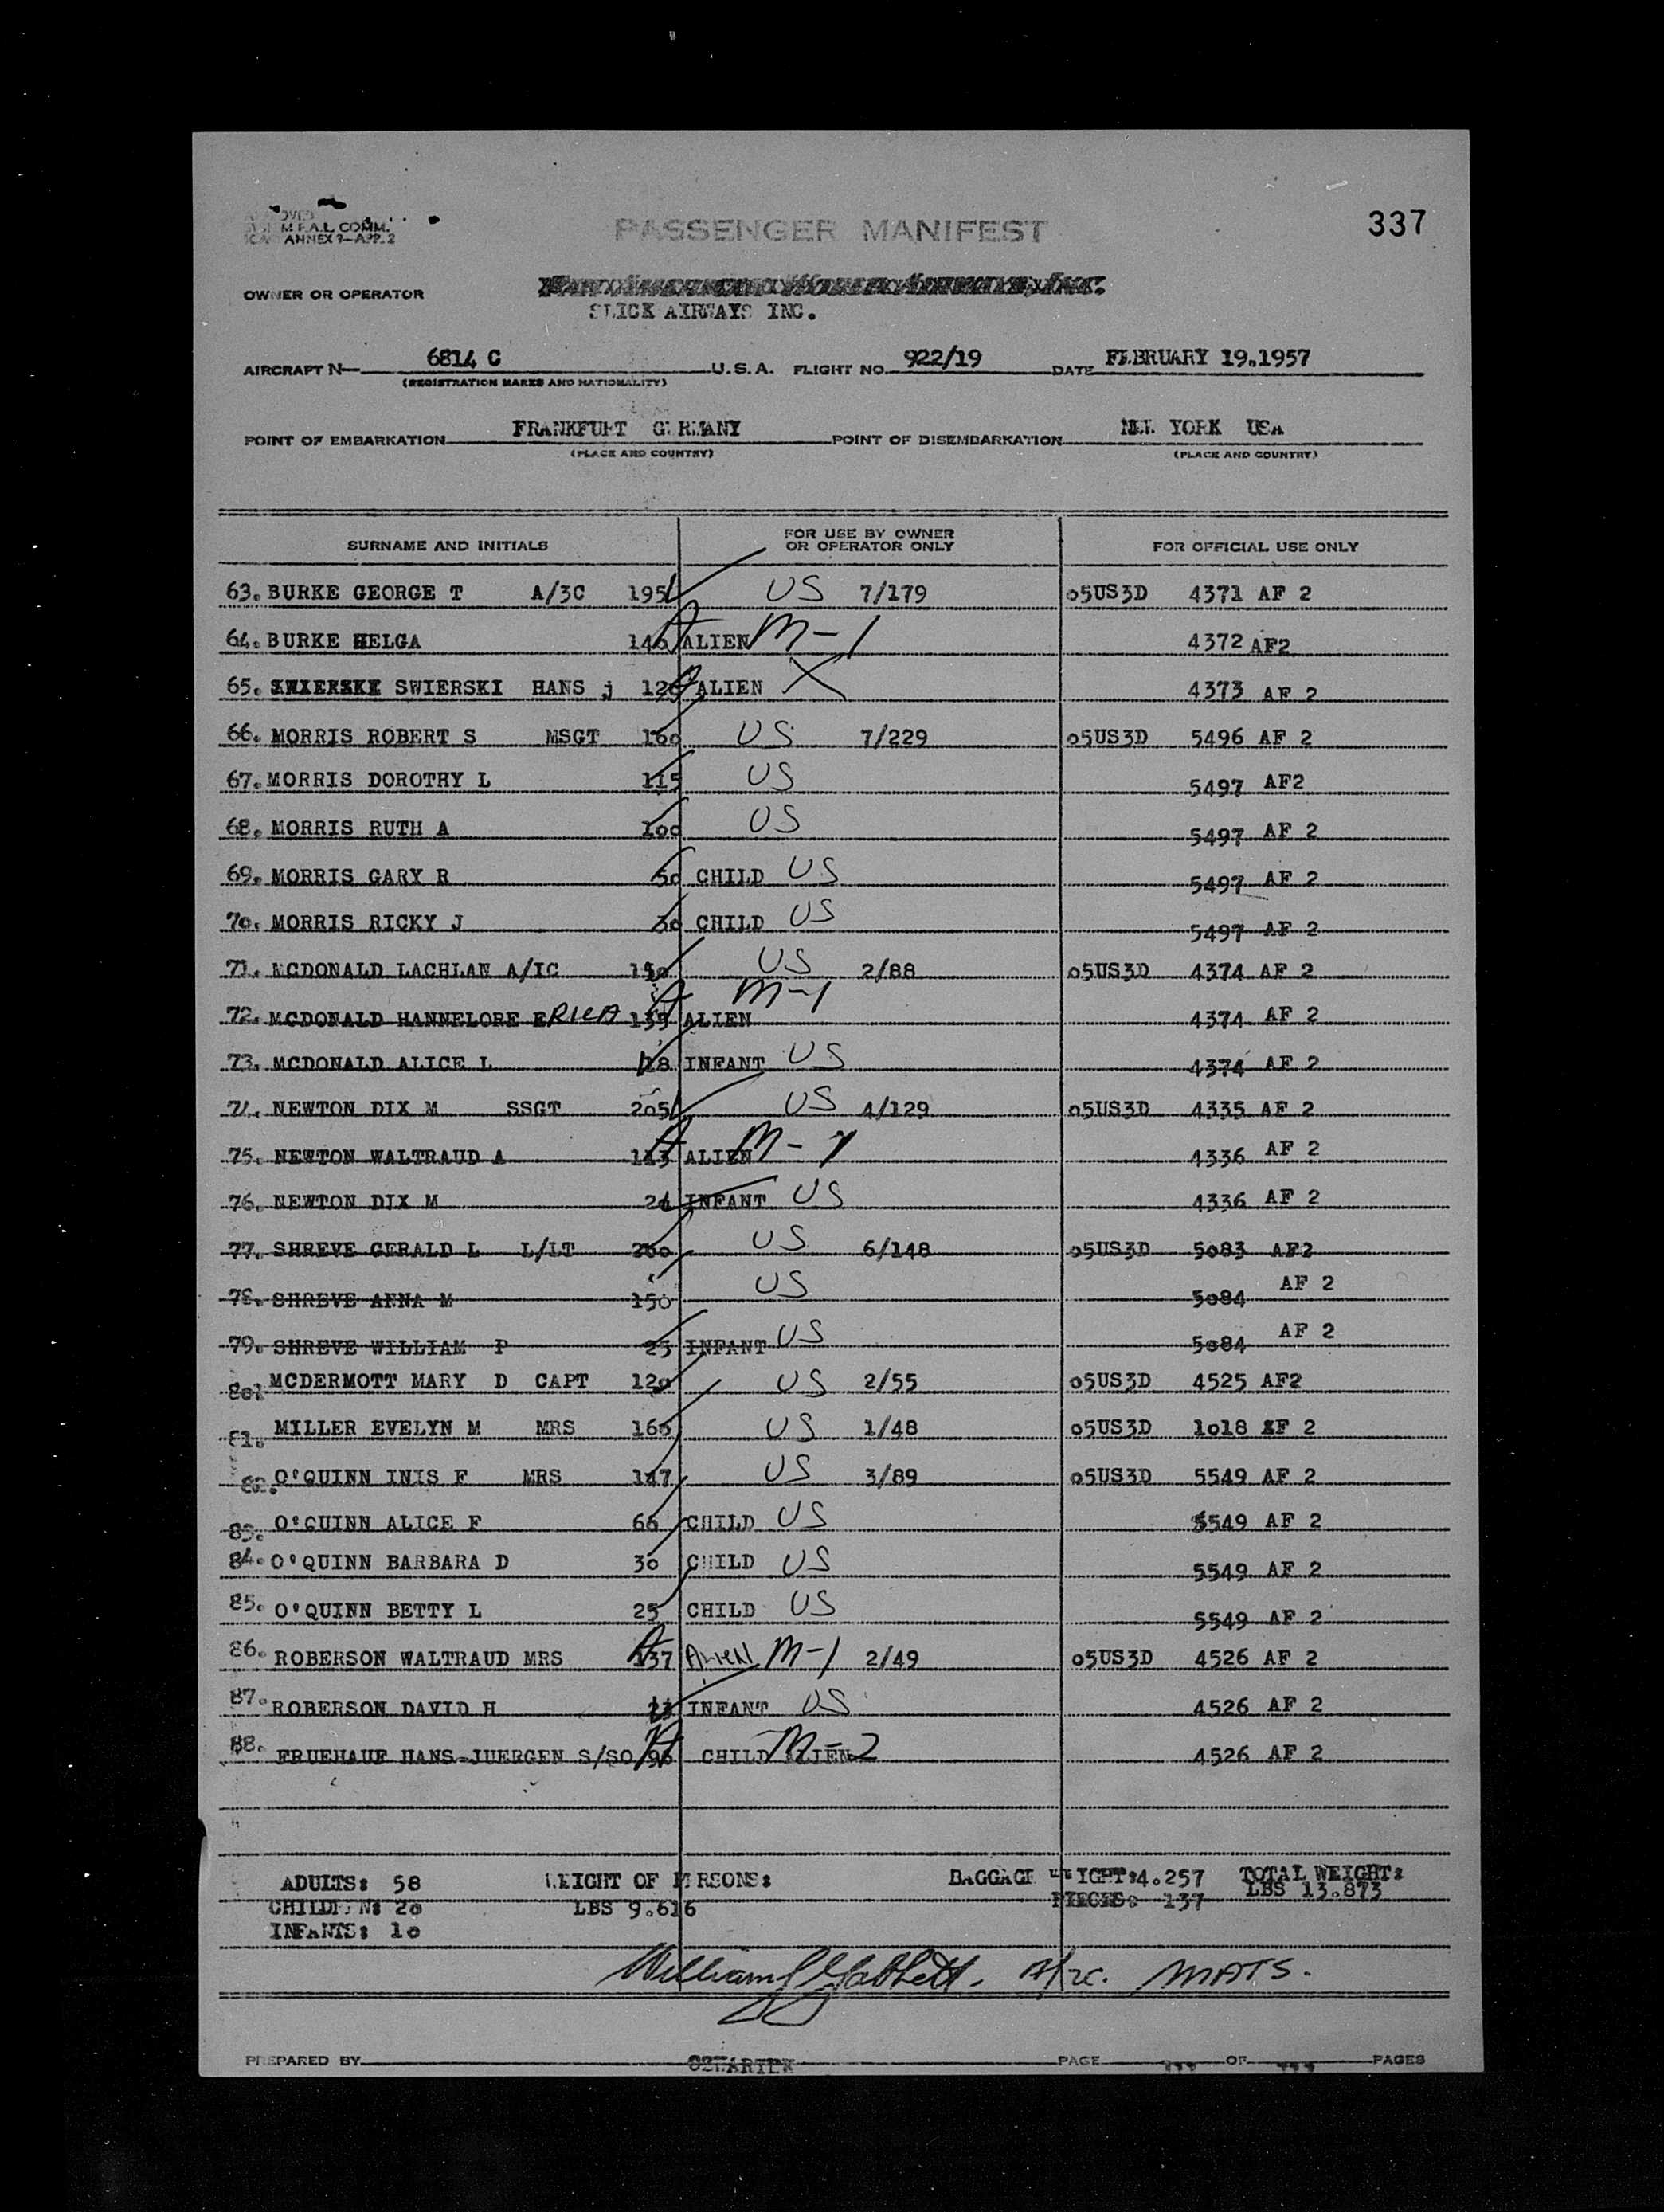 M F.A.L. COMM.
ANNEX 9-APP. 2
PASSENGER MANIFEST
337
OWNER OR OPERATOR
SLICK AIRWAYS INC.
AIRCRAFT N— 6814 C U.S.A. FLIGHT NO. 922/19 DATE FEBRUARY 19.1957
(REGISTRATION MARKS AND NATIONALITY)
POINT OF EMBARKATION FRANKFURT GERMANY POINT OF DISEMBARKATION NEW YORK USA
(PLACE AND COUNTRY) (PLACE AND COUNTRY)
SURNAME AND INITIALS FOR USE BY OWNER OR OPERATOR ONLY FOR OFFICIAL USE ONLY
63. BURKE GEORGE T A/3C 195 US 7/179 o5US3D 4371 AF 2
64. BURKE HELGA 140 A ALIEN M-1 4372 AF2
65. SWIERSKI HANS j A ALIEN X 4373 AF 2
66. MORRIS ROBERT S MSGT 160 US 7/229 o5US3D 5496 AF 2
67. MORRIS DOROTHY L 115 US 5497 AF2
68. MORRIS RUTH A 100 US 5497 AF 2
69. MORRIS GARY R 50 CHILD US 5497 AF 2
70. MORRIS RICKY J 30 CHILD US 5497 AF 2
71. MCDONALD LACHLAN A/IC 150 US 2/88 o5US3D 4374 AF 2
72. MCDONALD HANNELORE ERICA 135 A ALIEN M-1 4374 AF 2
73. MCDONALD ALICE L 18 INFANT US 4374 AF 2
74. NEWTON DIX M SSGT 205 US 4/129 o5US3D 4335 AF 2
75. NEWTON WALTRAUD A 113 A ALIEN M-1 4336 AF 2
76. NEWTON DIX M INFANT US 4336 AF 2
77. SHREVE GERALD L L/LT 200 US 6/148 o5US3D 5083 AF2
78. SHREVE ANNA M 150 US 5084 AF 2
79. SHREVE WILLIAM P 25 INFANT US 5084 AF 2
80. MCDERMOTT MARY D CAPT 120 US 2/55 o5US3D 4525 AF2
81. MILLER EVELYN M MRS 160 US 1/48 o5US3D 1018 AF 2
82. O'QUINN INIS F MRS 147 US 3/89 o5US3D 5549 AF 2
83. O'QUINN ALICE F 66 CHILD US 5549 AF 2
84. O'QUINN BARBARA D 30 CHILD US 5549 AF 2
85. O'QUINN BETTY L 25 CHILD US 5549 AF 2
86. ROBERSON WALTRAUD MRS A 137 ALIEN M-1 2/49 o5US3D 4526 AF 2
87. ROBERSON DAVID H INFANT US 4526 AF 2
88. FRUEHAUF HANS-JUERGEN S/SO A CHILD ALIEN M-2 4526 AF 2
ADULTS: 58 WEIGHT OF PERSONS: BAGGAGE WEIGHT:4.257 TOTAL WEIGHT:
CHILDREN: 20 LBS 9.616 PIECES: 137 LBS 13.873
INFANTS: 10
William A/2C. MATS.
PREPARED BY PAGE OF PAGES